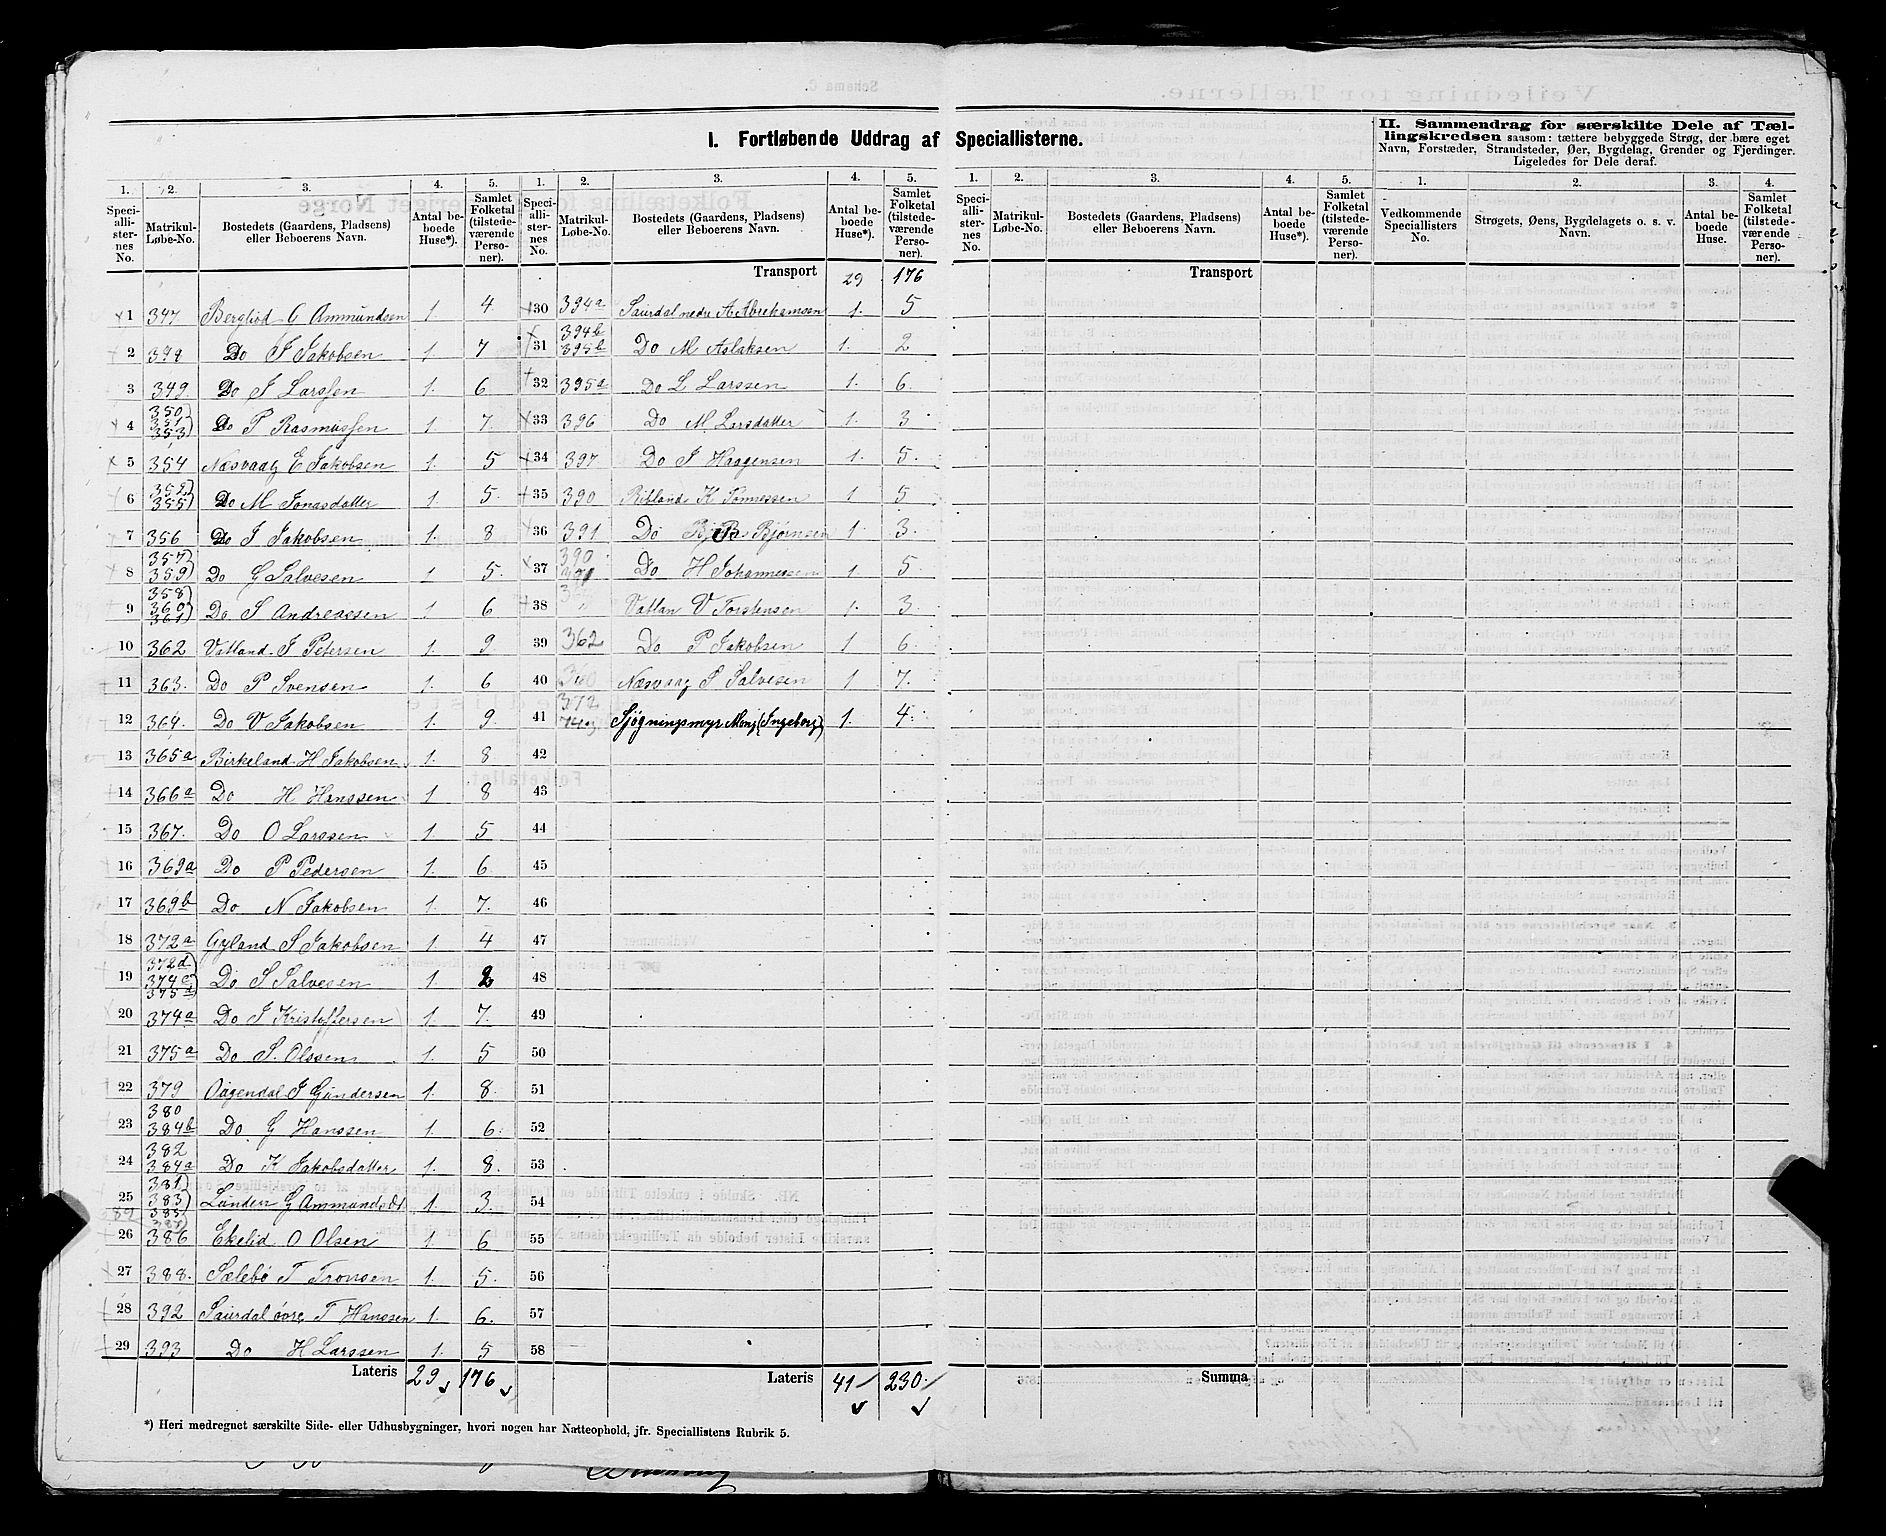 I. Fortløbende Uddrag af Speciallisterne.
II. Sammendrag for særskilte Dele af Tællingskredsen saasom: tættere bebyggede Strøg, der bære eget Navn, Forstæder, Strandsteder, Øer, Bygdelag, Grender og Fjerdinger. Ligeledes for Dele deraf.
1. 2. 3. 4. 5. 1. 2. 3. 4. 5. 1. 2. 3. 4. 5. 1. 2. 3. 4.
Speciallisternes No. Matrikul-Løbe-No. Bostedets (Gaardens, Pladsens) eller Beboerens Navn. Antal beboede Huse*). Samlet Folketal (tilstedeværende Personer).
Speciallisternes No. Matrikul-Løbe-No. Bostedets (Gaardens, Pladsens) eller Beboerens Navn. Antal beboede Huse*). Samlet Folketal (tilstedeværende Personer).
Speciallisternes No. Matrikul-Løbe-No. Bostedets (Gaardens, Pladsens) eller Beboerens Navn. Antal beboede Huse*). Samlet Folketal (tilstedeværende Personer).
Vedkommende Speciallisters No. Strøgets, Øens, Bygdelagets o. s. v. Navn. Antal beboede Huse. Samlet Folketal (tilstedeværende Personer).
1 347 Berglid C Ammundsen 1. 4
2 Do J Jakobsen 1. 7
3 349. Do J Larssen 1. 6
4 350 351 353 Do P Rasmussen 1. 7.
5 354 Næsvaag E Jakobsen 1. 5
6 352 355 Do M Jonasdatter 1 5.
7 356 Do J Jakobsen 1. 8
8 357 359 Do G Salvesen 1 5.
9 358 360 361 Do S Andreassen 1 6
10 362 Vatland J Petersen 1. 9
11 363. Do P Svensen 1. 6
12 364. Do V Jakobsen 1. 9.
13 365a Birkeland H Jakobsen 1. 8
14 366a Do H Hanssen 1 8
15 367. Do O Larssen 1. 5
16 369a Do P Pedersen 1. 6.
17 369b Do N Jakobsen 1. 7.
18 372a Gyland S Jakobsen 1 4
19 372d 374c 375d Do S Salvesen 1. 2
20 374a Do J Kristoffersen 1. 7.
21 375a Do S. Olssen 1. 5
22 379 J Gundersen 1. 8.
23 380 384b Do G Hanssen 1. 6.
24 382 384a Do K Jakobsdatter 1. 8.
25 381 383 385 Lunden G Ammundsdt 1. 3.
26 386 Ekelid O Olsen 1. 6
27 388. Sælebø T Tronsen 1. 5.
28 392 Saurdal övre T Hanssen 1. 6.
29 393 Do H Larssen 1. 5
Lateris 29 176
Transport 29 176
30 394a Saurdal nedre A Abrehamsen 1. 5
31 394b 395b Do M Aslaksen 1. 2
32 395a Do L Larssen 1. 6.
33 396 Do M Larsdatter 1. 3
34 397 Do J Haagensen 1. 5.
35 390 Ritland K Tønnessen 1 5
36 391 Do Bjørnsen 1 3.
37 390 391 Do H Johannessen 1 5
38 " Vatlan V Torstensen 1. 3.
39 362 Do P Jakobsen 1 6.
40 Næsvaag S Salvesen 1 7.
41 372 Sjøgningsmyr (Ingeborg) 1. 4.
42
43
44
45
46
47
48
49
50
51
52
53
54
55
56
57
58
Lateris 41 230
Transport
Summa
*) Heri medregnet særskilte Side- eller Udhusbygninger, hvori nogen har Natteophold, jfr. Speciallistens Rubrik 5.